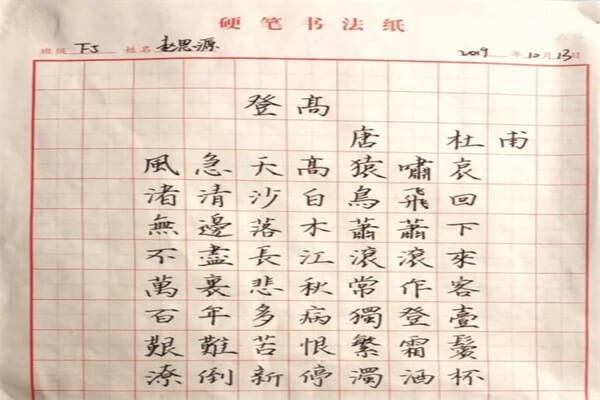 硬笔书法纸
班级 姓名 赵思源 2019年10月13日
登高
唐 杜甫
風急天高猿嘯哀
渚清沙白鳥飛回
無邊落木蕭蕭下
不盡長江滾滾來
萬裏悲秋常作客
百年多病獨登壹
艱難苦恨繁霜鬢
潦倒新停濁酒杯